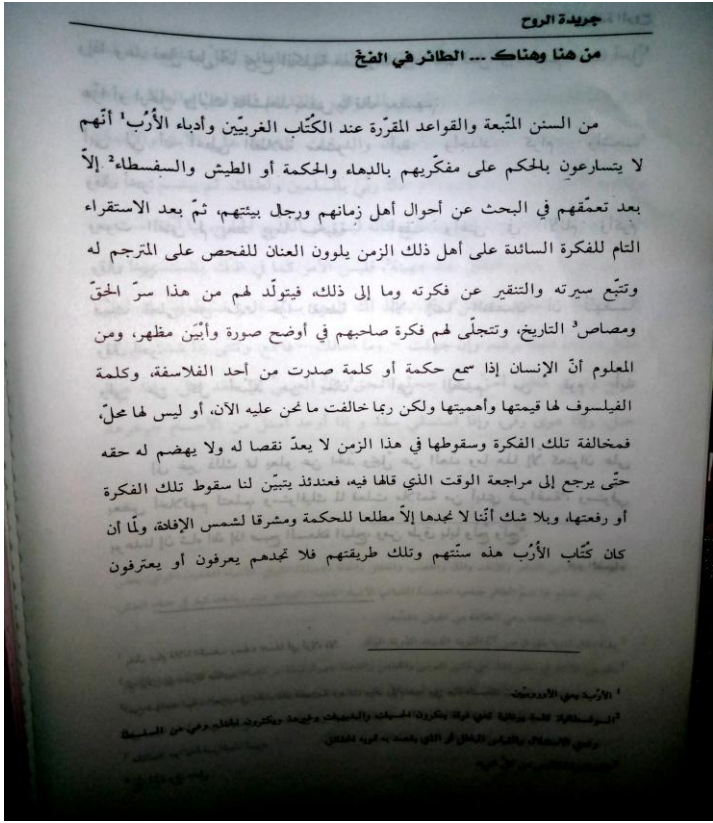 جريدة الروح
من هنا وهناك ... الطائر في الفخ
من السنن المتّبعة والقواعد المقرّرة عند الكُتّاب الغربيّين وأدباء الأرُب¹ أنّهم
لا يتسارعون بالحكم على مفكّريهم بالدهاء والحكمة أو الطيش والسفسطاء² إلاّ
بعد تعمّقهم في البحث عن أحوال أهل زمانهم ورجال بيئتهم، ثمّ بعد الاستقراء
التام للفكرة السائدة على أهل ذلك الزمن يلوون العنان للفحص على المترجم له
وتتبّع سيرته والتنقير عن فكرته وما إلى ذلك، فيتولّد لهم من هذا سرّ الحقّ
ومصاص³ التاريخ، وتتجلّى لهم فكرة صاحبهم في أوضح صورة وأبْيَن مظهر، ومن
المعلوم أنّ الإنسان إذا سمع حكمة أو كلمة صدرت من أحد الفلاسفة، وكلمة
الفيلسوف لها قيمتها وأهميتها ولكن ربما خالفت ما نحن عليه الآن، أو ليس لها محلّ،
فمخالفة تلك الفكرة وسقوطها في هذا الزمن لا يعدّ نقصا له ولا يهضم له حقه
حتّى يرجع إلى مراجعة الوقت الذي قالها فيه، فعندئذ يتبيّن لنا سقوط تلك الفكرة
أو رفعتها، وبلا شك أنّنا لا نجدها إلاّ مطلعا للحكمة ومشرقا لشمس الإفادة، ولمّا أن
كان كُتّاب الأرُب هذه سنّتهم وتلك طريقتهم فلا تجدهم يعرفون أو يعترفون
¹ الأرُب: يعني الأوروبيّين.
² السوفسطائية: كلمة يونانية تعني فرقة ينكرون الحسيات والبديهيات وغيرها